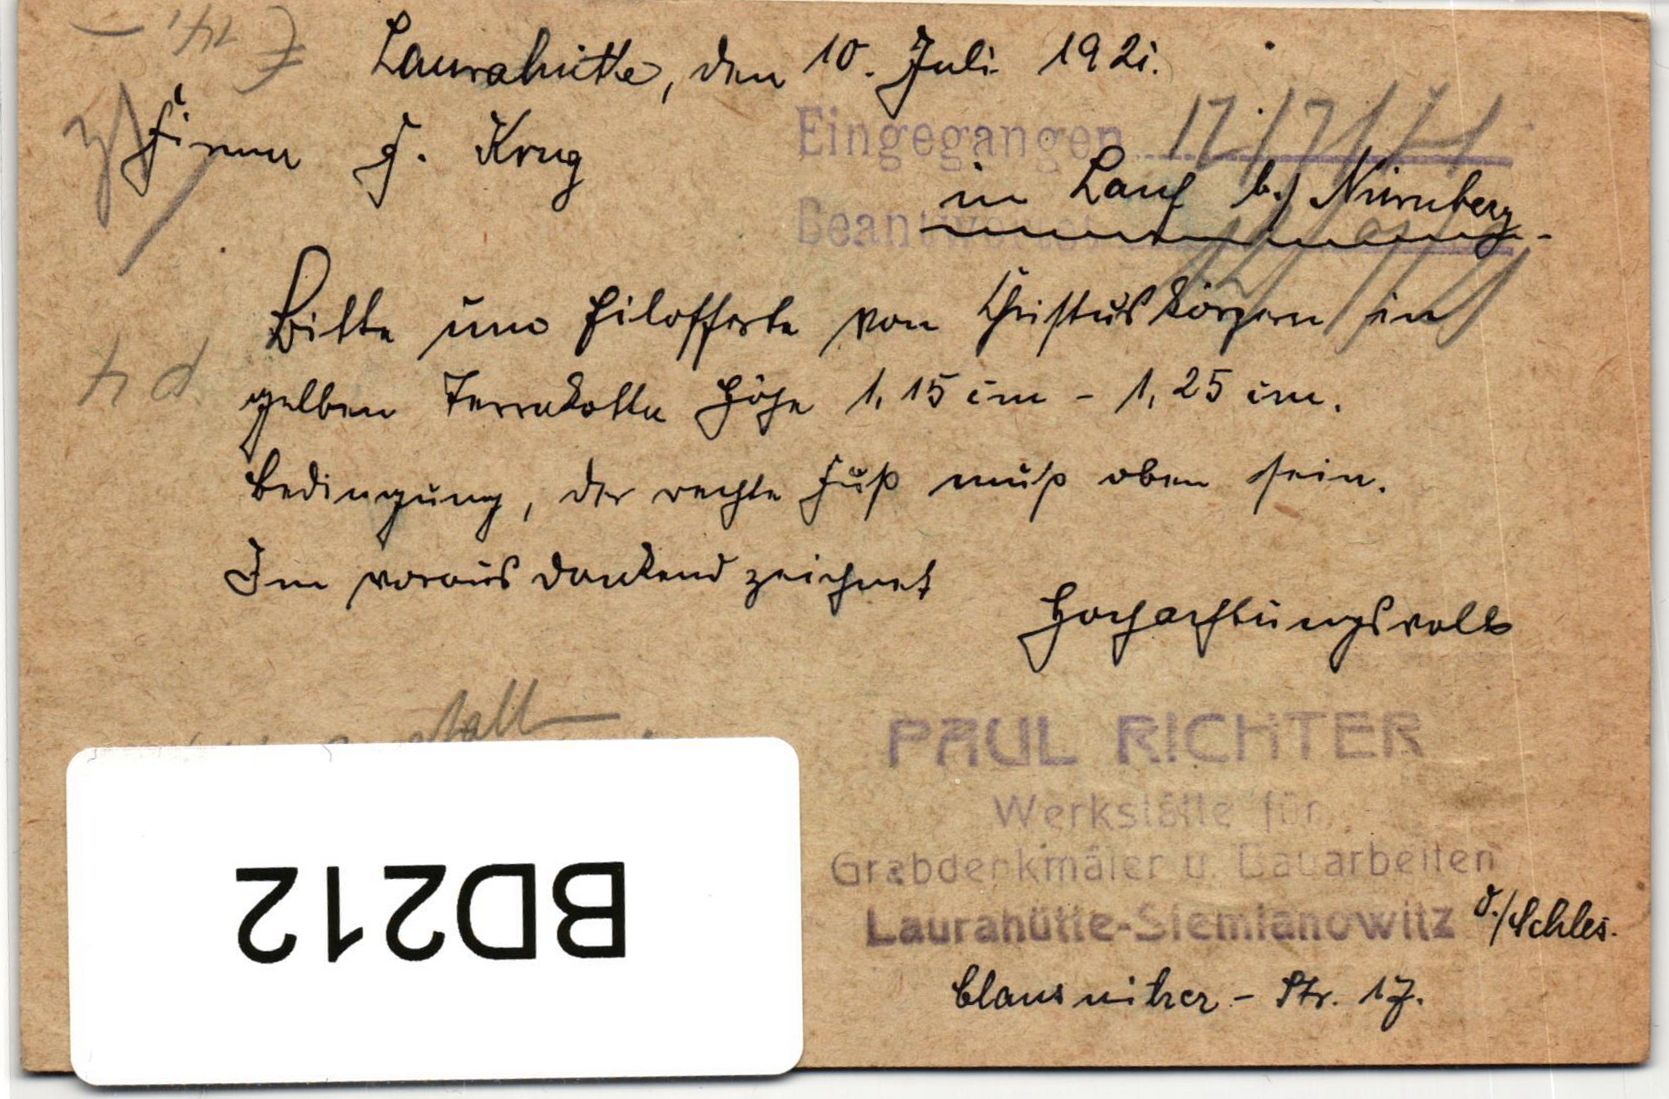 Laurahütte, den 10. Juli 1921.
Firma G. Krug
Eingegangen 17/7/21
in Lauf b./ Nürnberg
Beantwortet
Bitte um Eilofferte von Christuskörpern in
gelben Terrakotta Höhe 1,15 cm - 1,25 cm.
Bedingung, der rechte Fuß muß oben sein.
Im voraus dankend zeichnet
Hochachtungsvoll
PAUL RICHTER
Werkstätte für
Grabdenkmäler u. Bauarbeiten
Laurahütte-Siemianowitz O./Schles.
Clausnitzer - Str. 17.
BD212